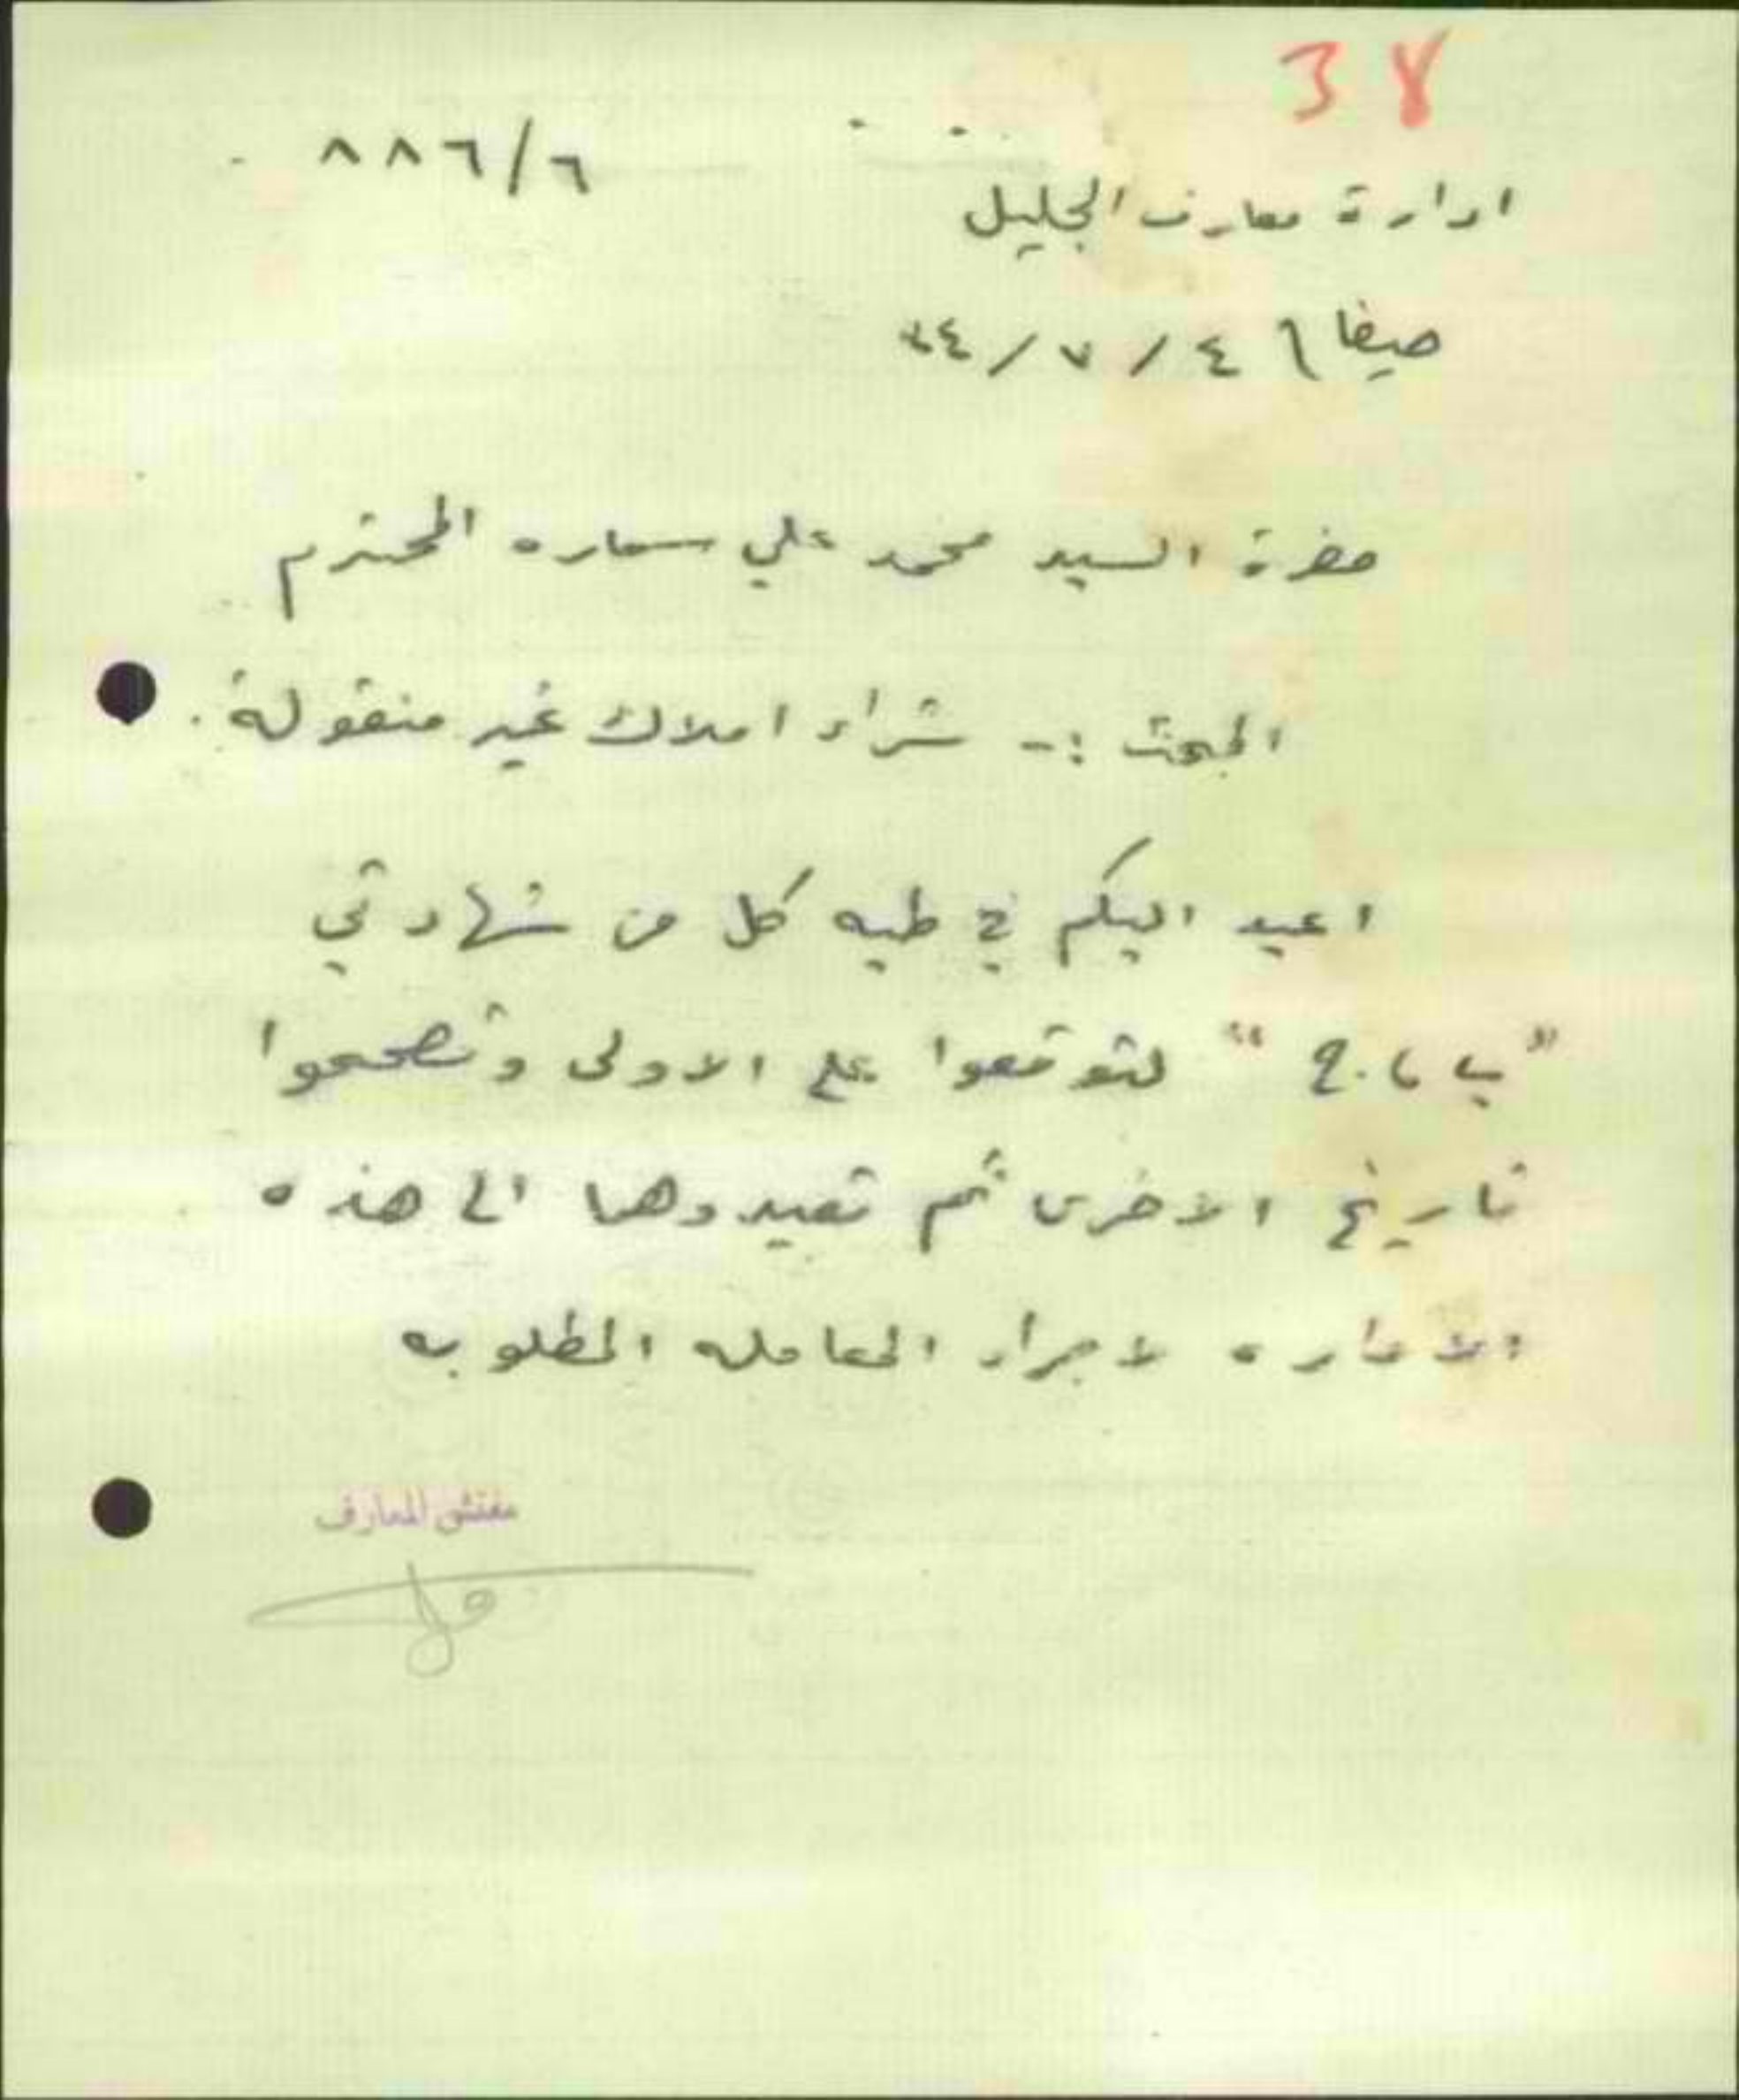 38
٨٨٦/٦
ادارة معارف الجليل
حيفا ٤ / ٧ / ٣٤
حضرة السيد محمد علي سماره المحترم
المبحث :- شراء املاك غير منقولة .
اعيد اليكم في طيه كل من شهادتي
"ب ، ج" لتوقعوا على الاولى وتصححوا
تاريخ الاخرى ثم تعيدوهما الى هذه
الاداره لاجراء المعامله المطلوبه
مفتش المعارف